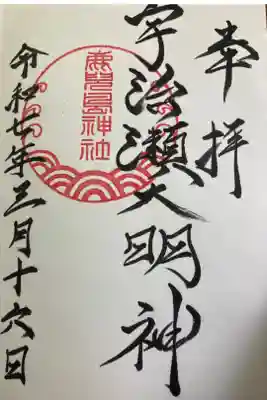 奉拝
宇治瀬大明神
鹿兒島神社
令和七年三月十六日